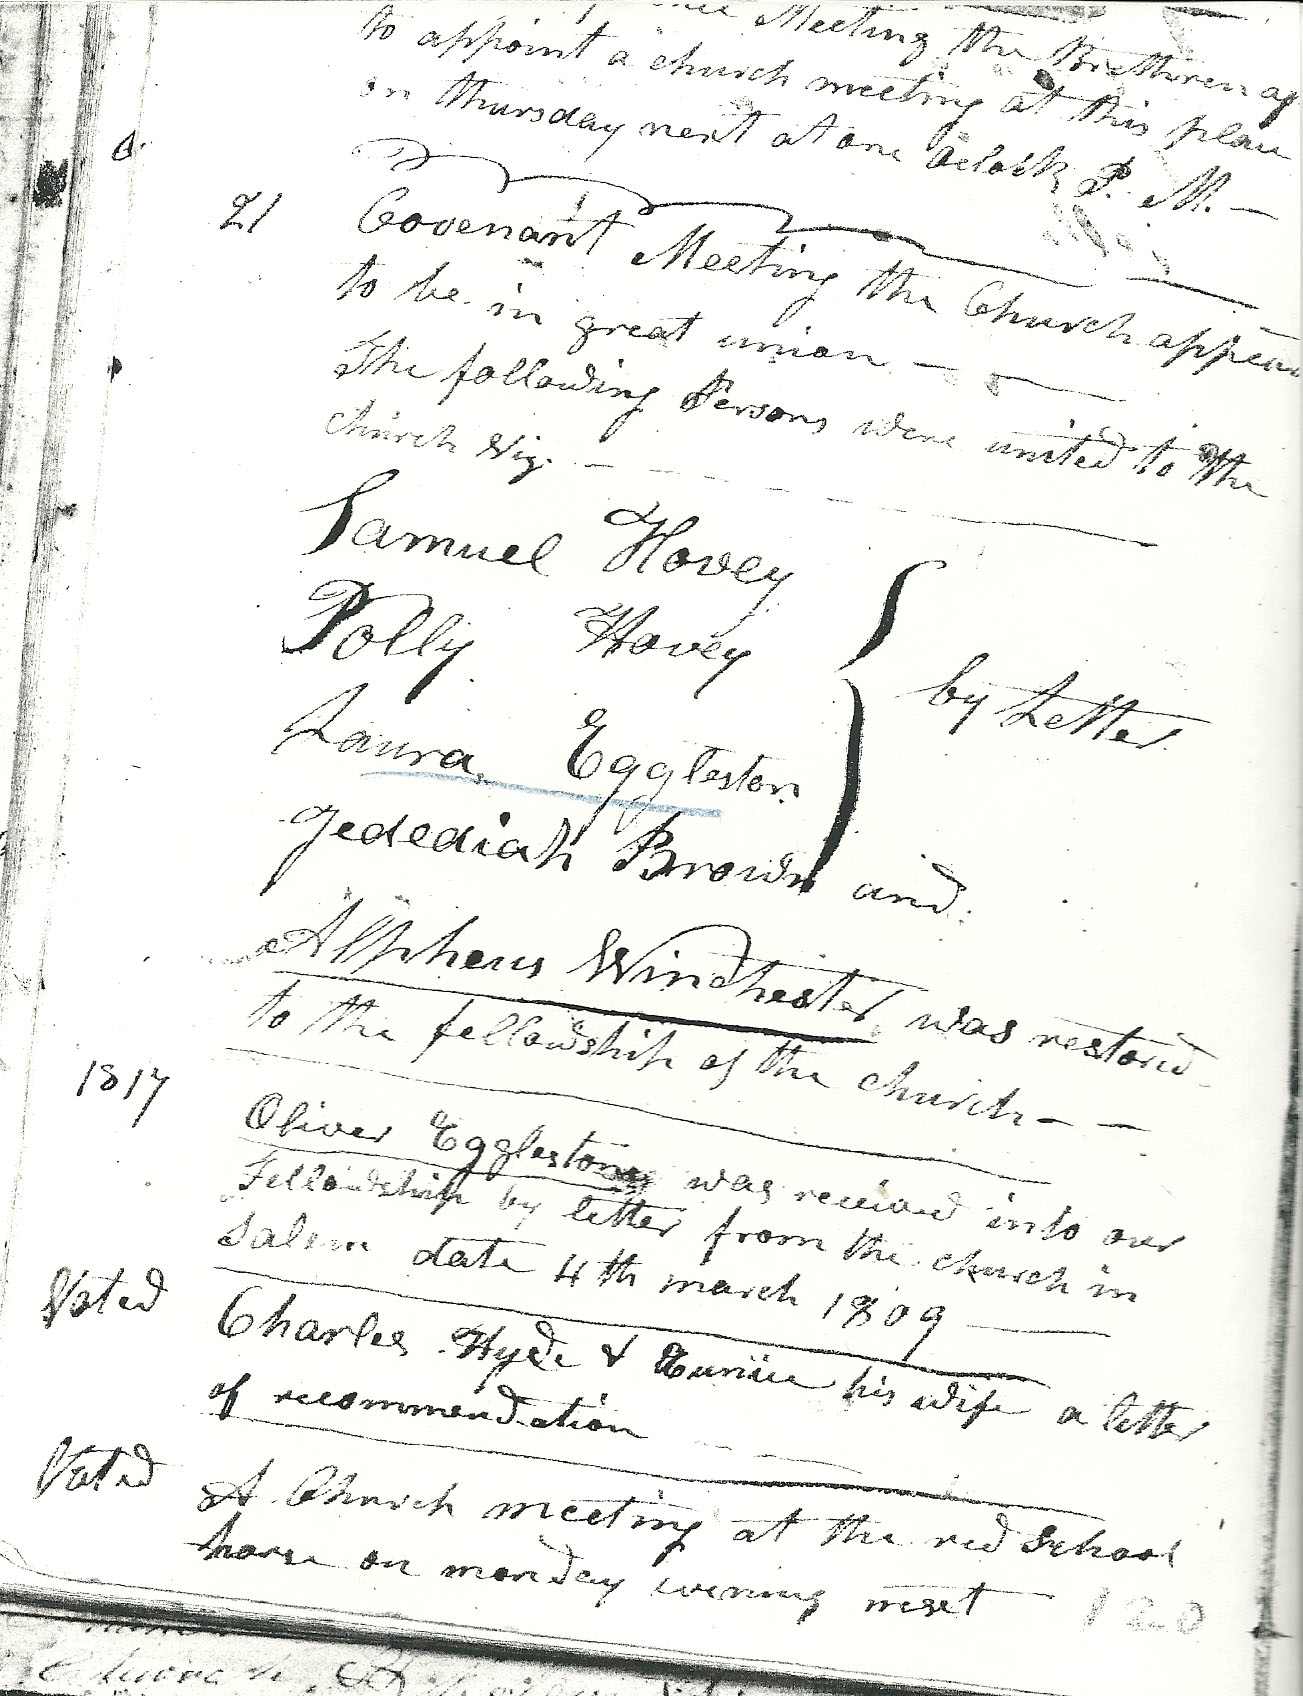 Meeting the Brethren ag
to appoint a church meeting at this place
on thursday next at one Oclock P. M. —
21 Covenant Meeting the Church appear
to be in great union —
The following Persons were united to the
church viz. —
Samuel Hovey
Polly Hovey
Laura Eggleston
by Letter
Jedediah Brown and
Allpheus Winchester was restored
to the fellowship of the church — —
1817
Oliver Egglestone was received into our
Fellowship by letter from the church in
Salem date 4th march 1809 —
Voted Charles Hyde & Eunice his wife a letter
of recommendation
Voted A Church meeting at the red school
house on monday evening next
120